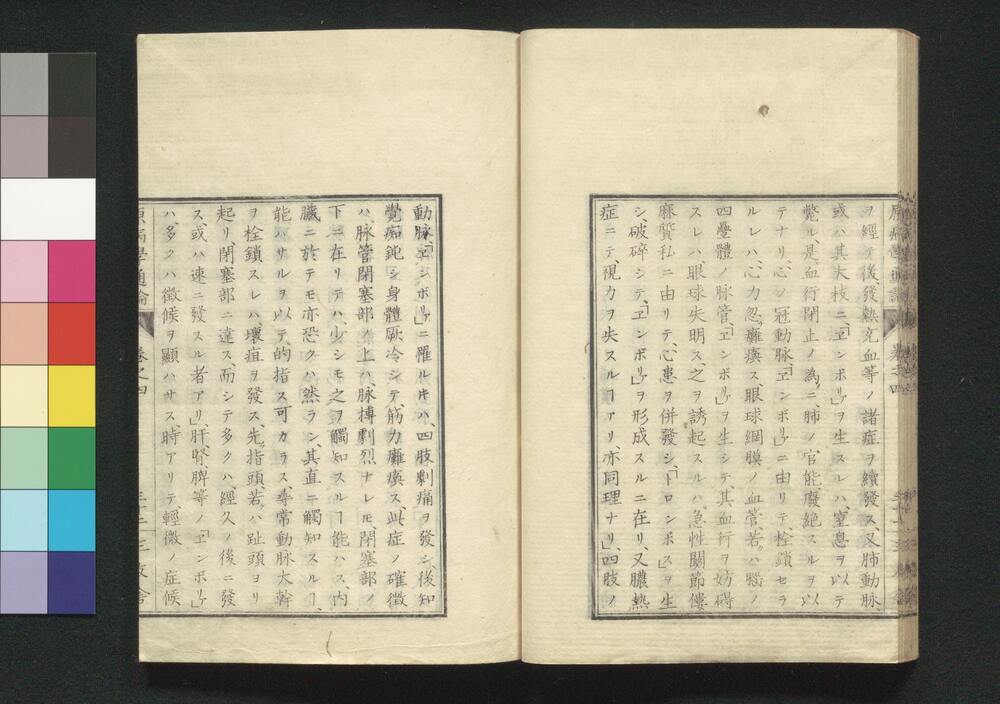 ヲ經テ後發熱充血等ノ諸症ヲ續發ス、又肺動脉、
或ハ其大枝ニ「ヱンボリ」ヲ生スレハ、窒息ヲ以テ
斃ル、是血行閉止ノ為ニ、肺ノ官能廢絶スルヲ以
テナリ、心ノ冠動脉「ヱンボリ」ニ由リテ、栓鎖セラ
ルレハ、心力忽癱瘓ス、眼球網膜ノ血管、若ハ腦ノ
四疊體ノ脉管、「ヱンボリ」ヲ生シテ、其血行ヲ妨碍
スレハ、眼球失明ス、之ヲ誘起スルハ、急性關節僂
麻質私ニ由リテ、心患ヲ併發シ、「トロンボス」ヲ生
シ、破碎シテ、「ヱンボリ」ヲ形成スルニ在リ、又膿熱
症ニテ、視力ヲ失スルヿアリ、亦同理ナリ、四肢ノ
動脉「ヱンボリ」ニ罹ル片ハ、四肢劇痛ヲ發シ、後知
覺痴鈍シ、身體厥冷シテ、筋力癱瘓ス、此症ノ確徴
ハ、脉管閉塞部ノ上ハ、脉搏劇烈ナレモ、閉塞部ノ
下ニ在リテハ、少シモ之ヲ觸知スルヿ能ハス、内
臓ニ於テモ亦恐クハ然ラン、其直ニ觸知スルヿ、
能ハサルヲ以テ、的指ス可カラス、尋常動脉大幹
ヲ、栓鎖スレハ、壞疽ヲ發ス、先指頭、若ハ趾頭ヨリ
起リ、閉塞部ニ達ス、而シテ多クハ、經久ノ後ニ發
ス、或ハ速ニ發スル者アリ、肝、腎、脾等ノ「ヱンボリ」
ハ、多クハ徴候ヲ顯ハサス、時アリテ輕微ノ症候
原病學通論 卷之四